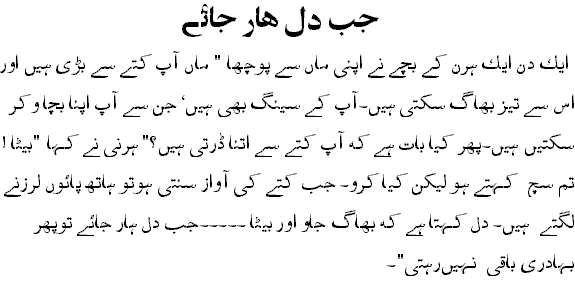 جب دل ھار جائے
ایک دن ایک ہرن کے بچے نے اپنی ماں سے پوچھا " ماں آپ کتے سے بڑی ہیں اور
اس سے تیز بھاگ سکتی ہیں۔آپ کے سینگ بھی ہیں‘ جن سے آپ اپنا بچا و کر
سکتیں ہیں۔پھر کیا بات ہے کہ آپ کتے سے اتنا ڈرتی ہیں؟" ہرنی نے کہا "بیٹا !
تم سچ کہتے ہو لیکن کیا کرو۔ جب کتے کی آواز سنتی ہوتو ہاتھ پائوں لرزنے
لگتے ہیں۔ دل کہتا ہے کہ بھاگ جاو اور بیٹا ۔۔۔۔۔جب دل ہار جائے توپھر
بہادری باقی نہیں رہتی"۔